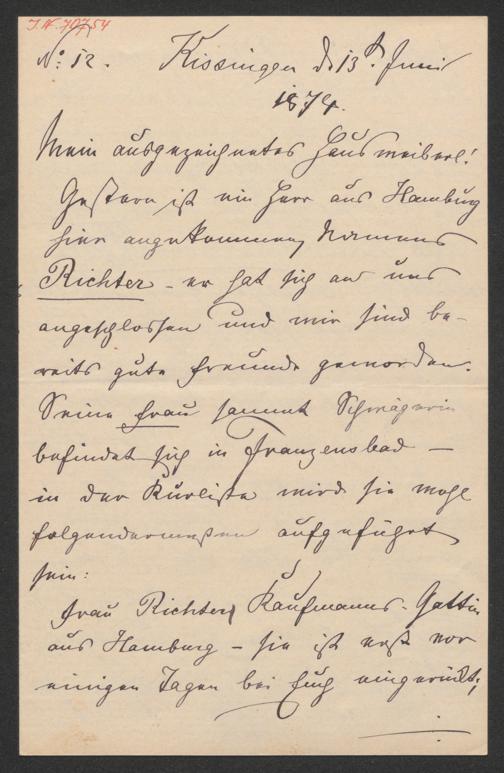 I.N. 70754
No: 12. Kissingen d. 13t. Juni
1874.
Mein ausgezeichnetes Hausweiberl!
Gestern ist ein Herr aus Hamburg
hier angekommen, Namens
Richter - er hat sich an uns
angeschlossen und wir sind be-
reits gute Freunde geworden.
Seine Frau sammt Schwägerin
befindet sich in Franzensbad -
in der Kurliste wird sie wohl
folgendermaßen aufgeführt
sein:
Frau Richter, Kaufmanns-Gattin
aus Hamburg - sie ist erst vor
einigen Tagen bei Euch eingerückt,